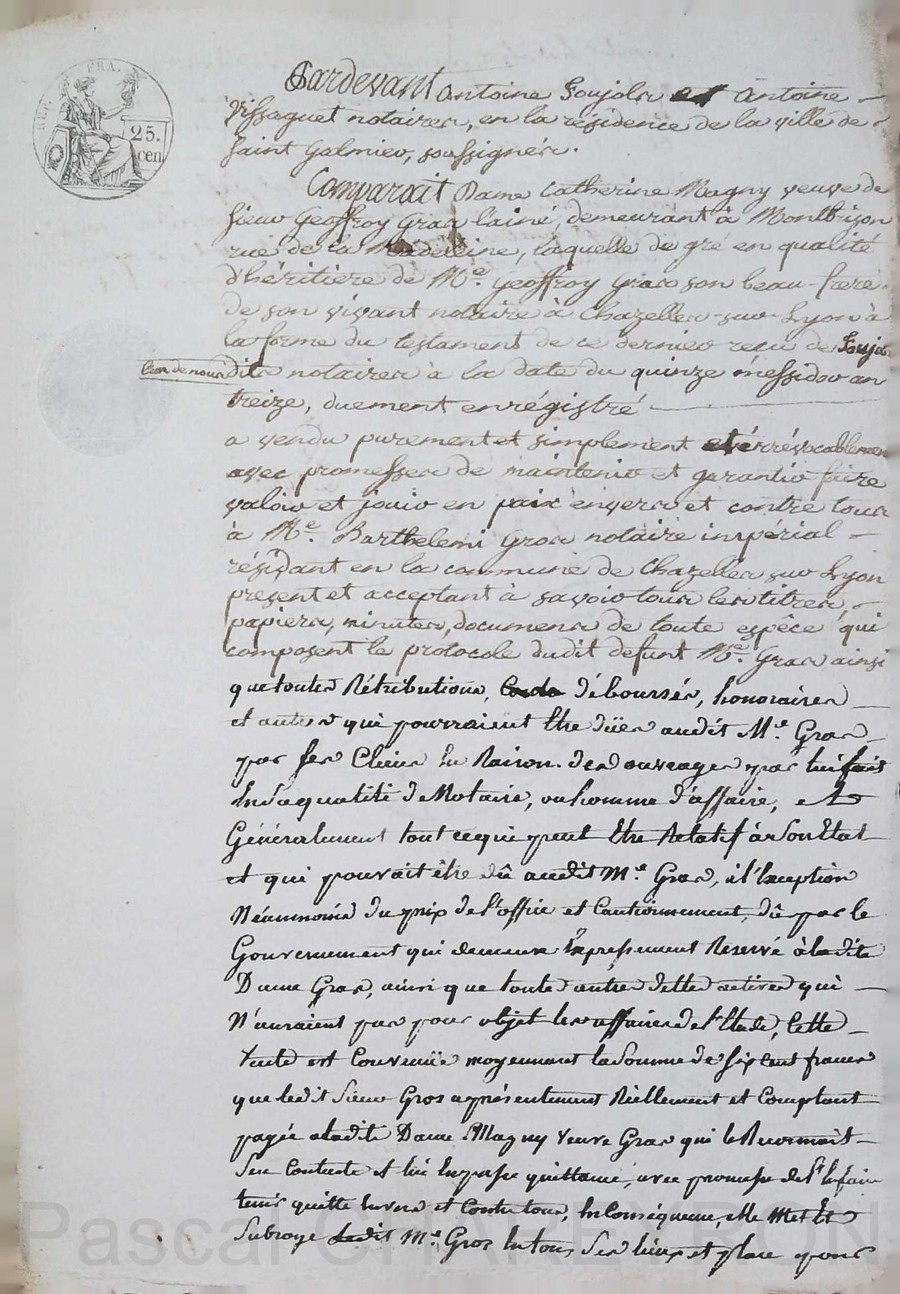 REP. FRA.
25.
cen
Pardevant Antoine Foujols et Antoine
Vissaguet notaires, en la résidence de la ville de
Saint Galmier, soussignés.
Comparait Dame Catherine Magny veuve de
Sieur Geoffroy Gras lainé, demeurant à Montbrison
rue de la Madeleine, laquelle de gré en qualité
d'héritiere de Me. Geoffroy Gras son beau-frere
de son vivant notaire à Chazelles-sur-Lyon à
la forme du testament de ce dernier reçu de Foujols
l'un de nous dits notaires à la date du quinze messidor an
treize, duement enrégistré
a vendu purement et simplement et irrévocablement
avec promesses de maintenir et garantir faire
valoir et jouir en paix envers et contre tous
à Me. Barthelemi Gros notaire impérial
résidant en la commune de Chazelles sur Lyon
présent et acceptant à savoir tous les titres,
papiers, minutes, documens de toute espêce qui
composent le protocole dudit defunt Me. Gras ainsi
que toutes Rétributions, déboursés, honoraires
et autres qui pourraient Etre düs audit Me. Gras
par ses Cliens En Raison des ouvrages par lui fait
En Sa qualité de Notaire, ou homme d'affaire, et
Généralement tout ce qui peut Etre Relatif à Son Etat
et qui pouvait être dû audit Me. Gras, à l'Exception
Néanmoins du prix de l'office et Cautionnement, dû par le
Gouvernement qui demeure Expressément Reservé à ladite
Dame Gras, ainsi que toute autres dettes actives qui
N'auraient pas pour objet les affaires de l'Etude, Cette
Vente est Convenüe moyennant la Somme de Six cent francs
que ledit Sieur Gros a présentement Réellement et Comptant
payée à ladite Dame Magny Veuve Gras qui le Reconnait
S'en Contente et lui En passe quittance, avec promesse de l'En faire
tenir quitte Envers et Contre tous, En Conséquence, elle Met Et
Subroge ledit Me. Gros En tous Ses lieux et place pour
Pascal CHARETRON